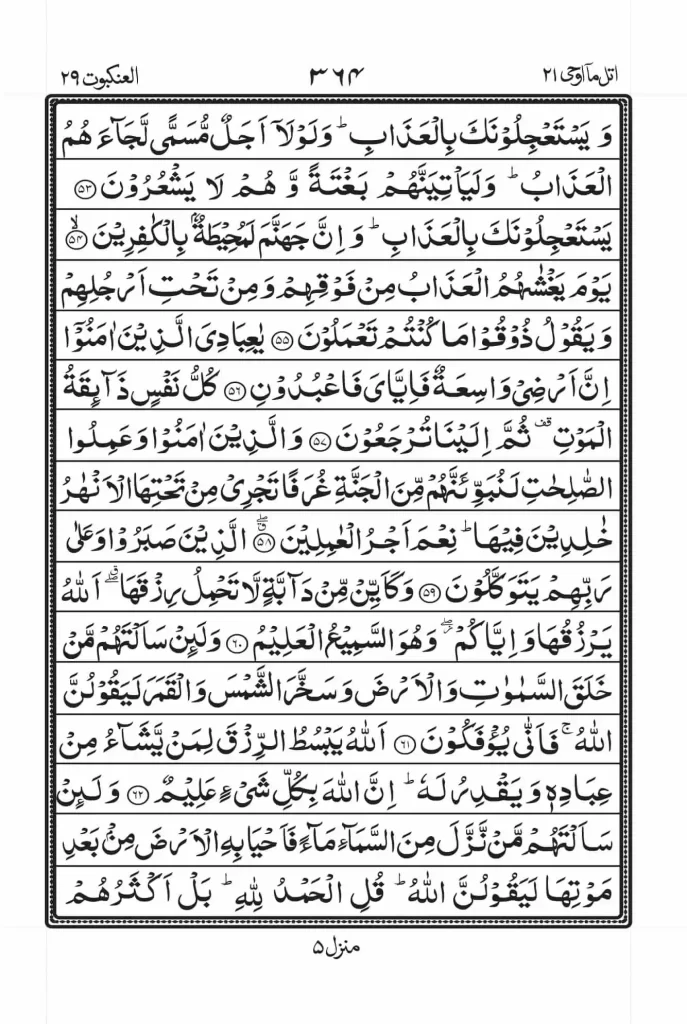 اتل ما اوحی ۲۱ ۳۶۴ العنکبوت ۲۹
وَ يَسْتَعْجِلُوْنَكَ بِالْعَذَابِ ؕ وَلَوْلَاۤ اَجَلٌ مُّسَمًّى لَّجَآءَ هُمُ
الْعَذَابُ ؕ وَلَيَاْتِيَنَّهُمْ بَغْتَةً وَّ هُمْ لَا يَشْعُرُوْنَ ۝۵۳
يَسْتَعْجِلُوْنَكَ بِالْعَذَابِ ؕ وَ اِنَّ جَهَنَّمَ لَمُحِيْطَةٌۢ بِالْكٰفِرِيْنَ ۙ۝۵۴
يَوْمَ يَغْشٰىهُمُ الْعَذَابُ مِنْ فَوْقِهِمْ وَ مِنْ تَحْتِ اَرْجُلِهِمْ
وَ يَقُوْلُ ذُوْقُوْا مَا كُنْتُمْ تَعْمَلُوْنَ ۝۵۵ يٰعِبَادِيَ الَّذِيْنَ اٰمَنُوْۤا
اِنَّ اَرْضِيْ وَاسِعَةٌ فَاِيَّايَ فَاعْبُدُوْنِ ۝۵۶ كُلُّ نَفْسٍ ذَآىِٕقَةُ
الْمَوْتِ قف ثُمَّ اِلَيْنَا تُرْجَعُوْنَ ۝۵۷ وَ الَّذِيْنَ اٰمَنُوْا وَ عَمِلُوا
الصّٰلِحٰتِ لَنُبَوِّئَنَّهُمْ مِّنَ الْجَنَّةِ غُرَفًا تَجْرِيْ مِنْ تَحْتِهَا الْاَنْهٰرُ
خٰلِدِيْنَ فِيْهَا ؕ نِعْمَ اَجْرُ الْعٰمِلِيْنَ ۝۵۸ۗۖ الَّذِيْنَ صَبَرُوْا وَ عَلٰى
رَبِّهِمْ يَتَوَكَّلُوْنَ ۝۵۹ وَ كَاَيِّنْ مِّنْ دَآبَّةٍ لَّا تَحْمِلُ رِزْقَهَا ۗۖ اَللّٰهُ
يَرْزُقُهَا وَ اِيَّاكُمْ ۖ وَ هُوَ السَّمِيْعُ الْعَلِيْمُ ۝۶۰ وَ لَىِٕنْ سَاَلْتَهُمْ مَّنْ
خَلَقَ السَّمٰوٰتِ وَ الْاَرْضَ وَ سَخَّرَ الشَّمْسَ وَ الْقَمَرَ لَيَقُوْلُنَّ
اللّٰهُ ۚ فَاَنّٰى يُؤْفَكُوْنَ ۝۶۱ اَللّٰهُ يَبْسُطُ الرِّزْقَ لِمَنْ يَّشَآءُ مِنْ
عِبَادِهٖ وَ يَقْدِرُ لَهٗ ؕ اِنَّ اللّٰهَ بِكُلِّ شَيْءٍ عَلِيْمٌ ۝۶۲ وَ لَىِٕنْ
سَاَلْتَهُمْ مَّنْ نَّزَّلَ مِنَ السَّمَآءِ مَآءً فَاَحْيَا بِهِ الْاَرْضَ مِنْۢ بَعْدِ
مَوْتِهَا لَيَقُوْلُنَّ اللّٰهُ ؕ قُلِ الْحَمْدُ لِلّٰهِ ؕ بَلْ اَكْثَرُهُمْ
منزل ۵